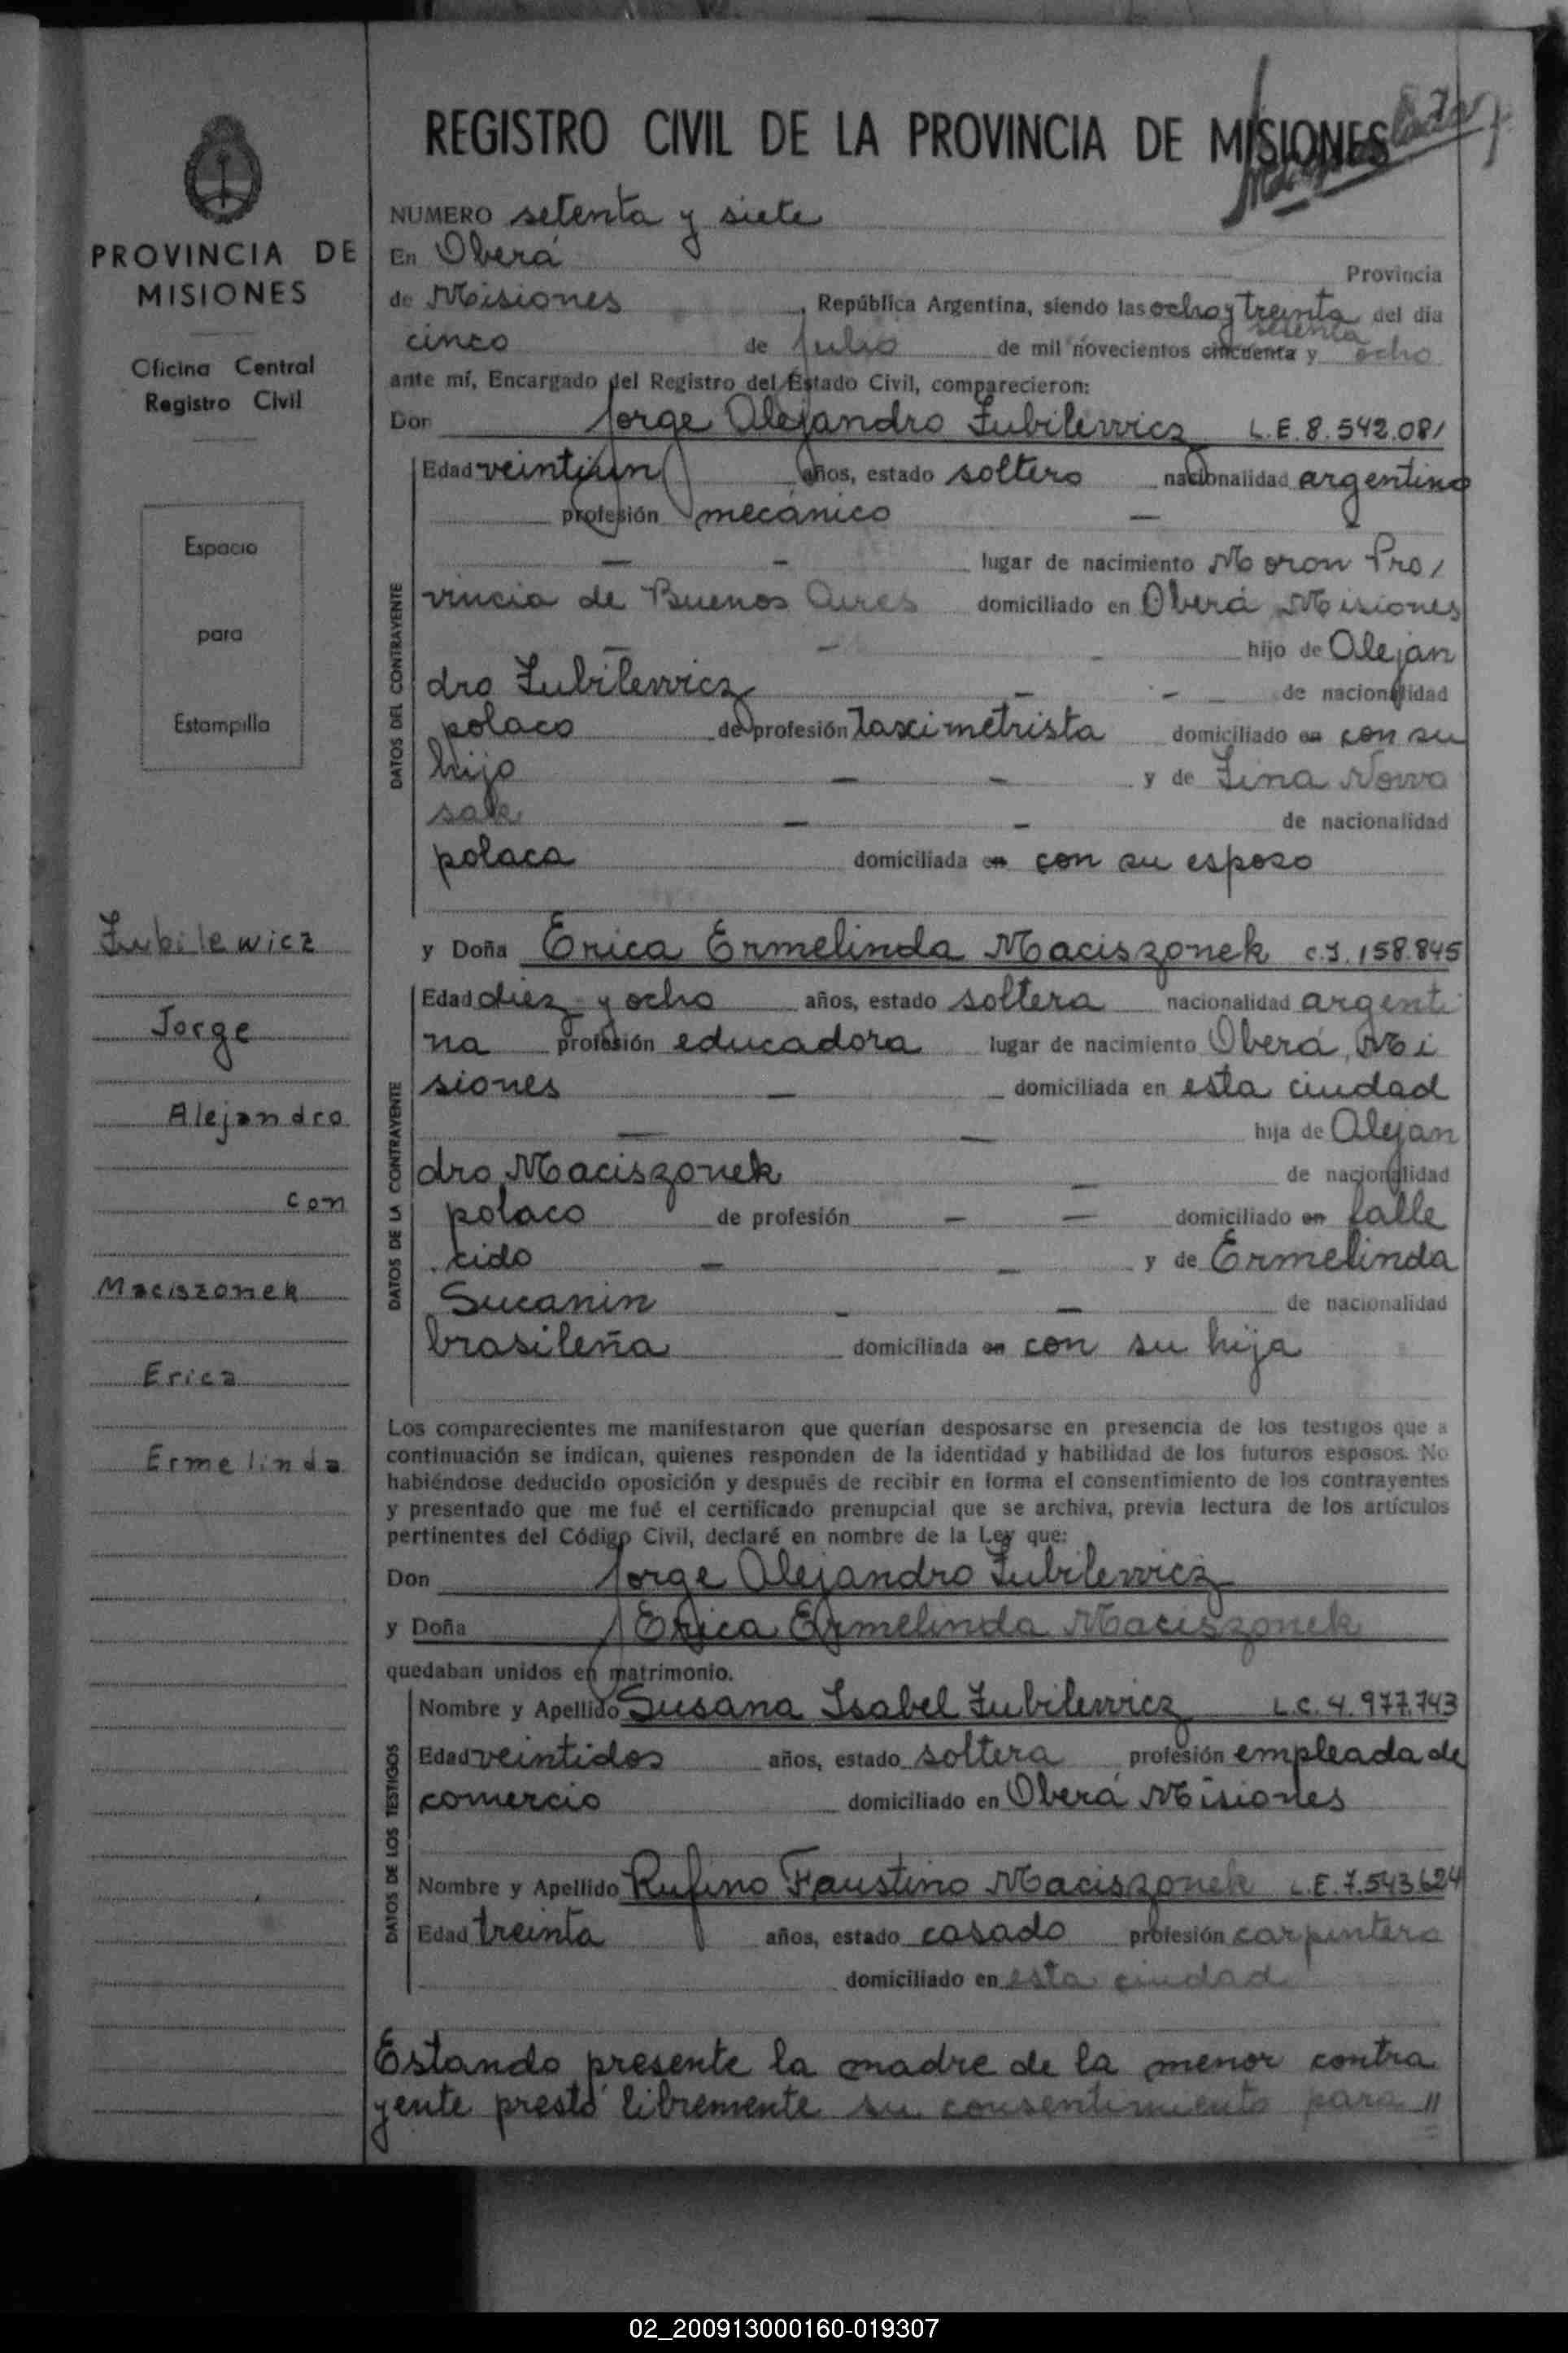 REGISTRO CIVIL DE LA PROVINCIA DE MISIONES
PROVINCIA DE
MISIONES
Oficina Central
Registro Civil
Espacio
para
Estampilla
Zubilewicz
Jorge
Alejandro
con
Maciszonek
Erica
Ermelinda
NUMERO setenta y siete
En Oberá
Provincia
de Misiones, República Argentina, siendo las ocho y treinta del día
setenta
cinco de julio de mil novecientos cincuenta y ocho
ante mí, Encargado del Registro del Estado Civil, comparecieron:
Don Jorge Alejandro Zubilewicz L.E. 8.542.081
DATOS DEL CONTRAYENTE
Edad veintiun años, estado soltero nacionalidad argentino
profesión mecánico —
— - lugar de nacimiento Moron Pro/
vincia de Buenos Aires domiciliado en Oberá Misiones
— - hijo de Alejan
dro Zubilewicz — - de nacionalidad
polaco de profesión taximetrista domiciliado en con su
hijo — - y de Zina Nowo
sak — - de nacionalidad
polaca domiciliada en con su esposo
y Doña Erica Ermelinda Maciszonek C.I. 158.845
DATOS DE LA CONTRAYENTE
Edad diez y ocho años, estado soltera nacionalidad argenti
na profesión educadora lugar de nacimiento Oberá, Mi
siones — domiciliada en esta ciudad
— — hija de Alejan
dro Maciszonek — de nacionalidad
polaco de profesión - — domiciliado en falle
cido — — y de Ermelinda
Sucanin - — de nacionalidad
brasileña domiciliada en con su hija
Los comparecientes me manifestaron que querían desposarse en presencia de los testigos que a
continuación se indican, quienes responden de la identidad y habilidad de los futuros esposos. No
habiéndose deducido oposición y después de recibir en forma el consentimiento de los contrayentes
y presentado que me fué el certificado prenupcial que se archiva, previa lectura de los artículos
pertinentes del Código Civil, declaré en nombre de la Ley que:
Don Jorge Alejandro Zubilewicz
y Doña Erica Ermelinda Maciszonek
quedaban unidos en matrimonio.
DATOS DE LOS TESTIGOS
Nombre y Apellido Susana Isabel Zubilewicz L.C. 4.977.743
Edad veintidos años, estado soltera profesión empleada de
comercio domiciliado en Oberá Misiones
Nombre y Apellido Rufino Faustino Maciszonek L.E. 7.543.624
Edad treinta años, estado casado profesión carpintero
domiciliado en esta ciudad
Estando presente la madre de la menor contra
yente prestó libremente su consentimiento para //
02_200913000160-019307